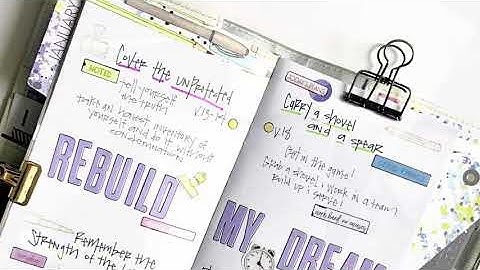 JANUARY
Cover the unprotected
NOTES
Tell yourself
the truth!
V.13-14
take an honest inventory of
yourself and do it without
condemnation
REBUILD
Remember the
Strength of the
Carry a shovel
and a spear
V.18
Get in the game!
Grab a shovel! Work as a team!
Build up & serve!
MY DREAM